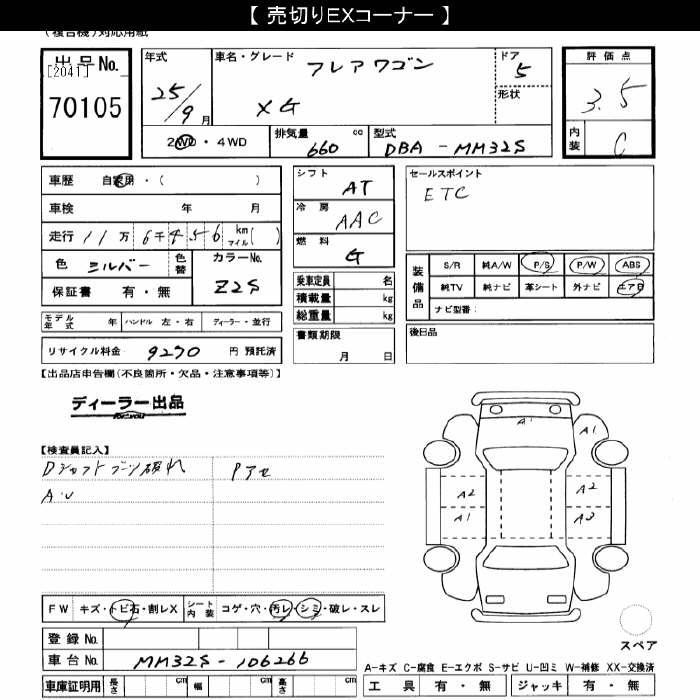 【 売切りEXコーナー 】
(複合機)対応用紙
出品 No.
[2041]
70105
年式
25/9月
車名・グレード
フレアワゴン
XG
ドア
5
形状
評価点
3.5
内装
C
2WD・4WD
排気量 660 cc
型式 DBA - MM32S
車歴 自家用・( )
車検 年 月
走行 11万6千456 km マイル( )
色 シルバー 色替
カラーNo. Z2S
保証書 有・無
モデル年式 年 ハンドル 左・右 ディーラー・並行
リサイクル料金 9270 円 預託済
シフト AT
冷房 AAC
燃料 G
乗車定員 名
積載量 kg
総重量 kg
書類期限
月 日
セールスポイント
ETC
装備品
S/R 純A/W P/S P/W ABS
純TV 純ナビ 革シート 外ナビ エアB
ナビ型番:
後日品
【出品店申告欄(不良箇所・欠品・注意事項等)】
ディーラー出品
for you
【検査員記入】
Dシャフトブーツ破れ
Pアセ
A.U
A1
A1
A2
A2
A1
A3
FW キズ・トビ石・割レX シート内装 コゲ・穴・汚レ・シミ・破レ・スレ
登録 No.
車台 No. MM32S - 106266
車庫証明用 長さ cm 幅 cm 高さ cm
スペア
A-キズ C-腐食 E-エクボ S-サビ U-凹ミ W-補修 XX-交換済
工具 有・無 ジャッキ 有・無